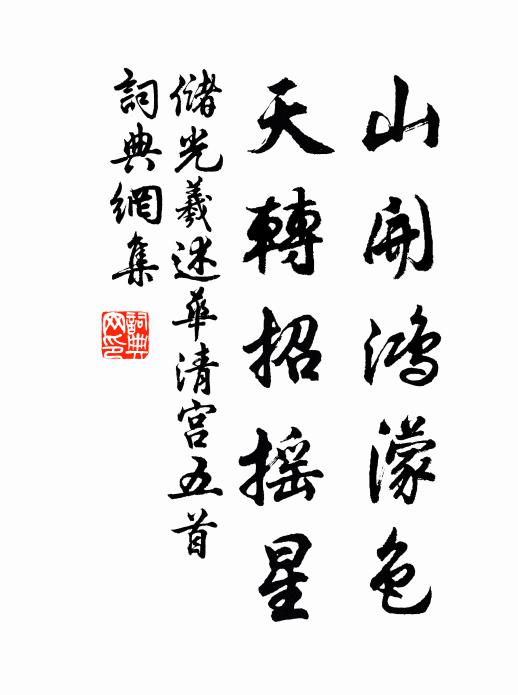 山開鴻濛色
天轉招摇星
儲光羲述華清宫五首
詞典網集
詞典網印